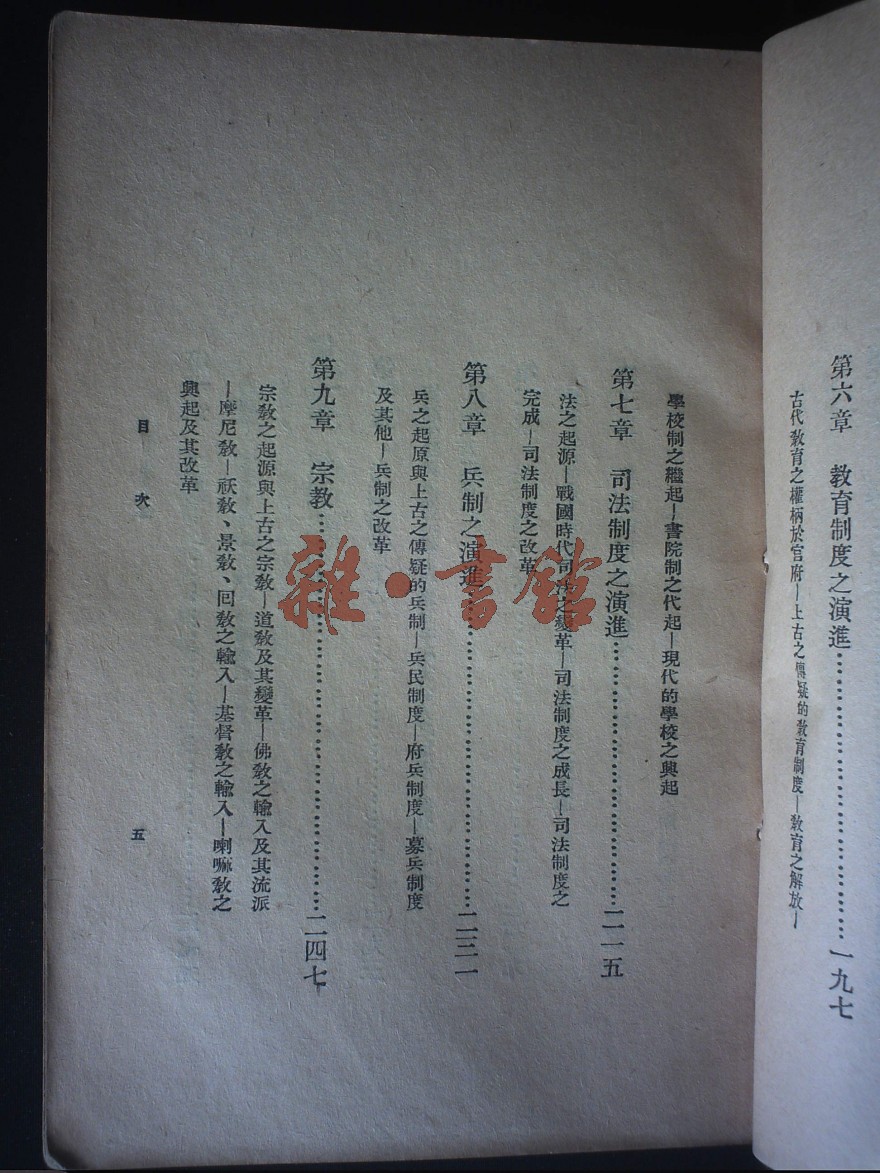 第六章　教育制度之演進……………………一九七
古代教育之權柄於官府—上古之傳疑的教育制度—教育之解放—
學校制之繼起—書院制之代起—現代的學校之興起
第七章　司法制度之演進……………………二一五
法之起源—戰國時代司法之變革—司法制度之成長—司法制度之
完成—司法制度之改革
第八章　兵制之演進……………………二三一
兵之起原與上古之傳疑的兵制—兵民制度—府兵制度—募兵制度
及其他—兵制之改革
第九章　宗教……………………二四七
宗教之起源與上古之宗教—道教及其變革—佛教之輸入及其流派
—摩尼教—祆教、景教、回教之輸入—基督教之輸入—喇嘛教之
興起及其改革
目次
五
雜·書館